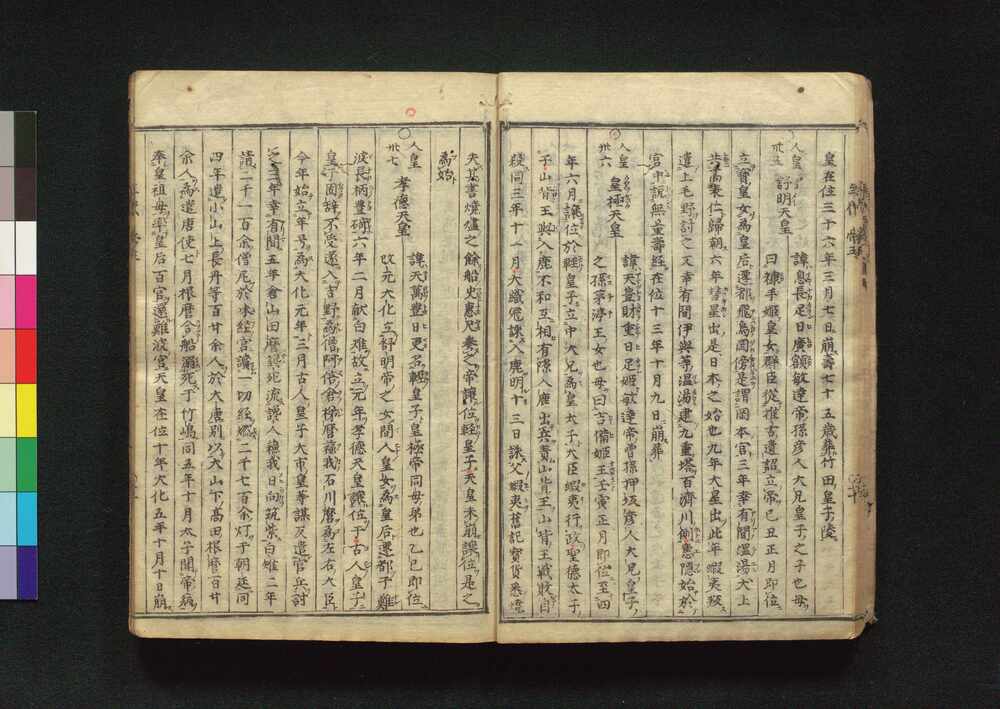 皇在位三十六年三月七日崩壽七十五歳葬竹田皇子陵
人皇
卅五
舒明天皇
諱息長足日廣額敏達帝孫彦人大兄皇子之子也母
曰糠手姫皇女群臣從推古遺詔立帝已丑正月即位
立寳皇女為皇后遷都飛鳥岡傍是謂岡本宮三年幸有間温湯犬上
歸朝六年彗星出是日本之始也九年大星出此年蝦夷叛
遣上毛野討之又幸有間伊與等温湯建九重塔百濟川側惠隠始於
宮中説無量壽経在位十三年十月九日崩葬
人皇
卅六
皇極天皇
諱天豊財重日足姫敏達帝曾孫押坂彦人大兄皇子
之孫茅渟王女也母曰吉備姫王壬寅正月即位至四
年六月讓位於軽皇子立中大兄為皇太子大臣蝦夷行政聖德太子
子山背王與入鹿不和互相有隙入鹿出兵責山背王山背王戰敗自
殺同三年十一月大織冠誅入鹿明十三日誅父蝦夷舊記寳貨悉燒
失其書燒燼之餘船史惠尺奏之帝讓位軽皇子天皇未崩讓位是之
為始
人皇
卅七
孝德天皇
諱天萬豊日更名軽皇子皇極帝同母弟也乙巳即位
改元大化立舒明帝之女間人皇女為皇后遷都于難
波長柄豊碕六年二月献白雉故立元年孝德天皇讓位于古人皇子
皇子固辞不受遂入吉野為僧阿倍倉梯麿蘇我石川麿為左右大臣
今年始立年号為大化元年三月古人皇子大市皇等謀反遣官兵討
之三年幸有間五年倉山田麿誅死流讒人穂我日向筑紫白雉二年
請二千一百余僧尼於味経宮讀一切経燃二千七百余灯于朝廷同
四年遣小山上長丹等百廿余人於大唐別以大山下高田根麿百廿
余人為遣唐使七月根麿合船溺死于竹嶋同五年十月太子聞帝病
奉皇祖母率皇后百官還難波宮天皇在位十年大化五年十月十日崩